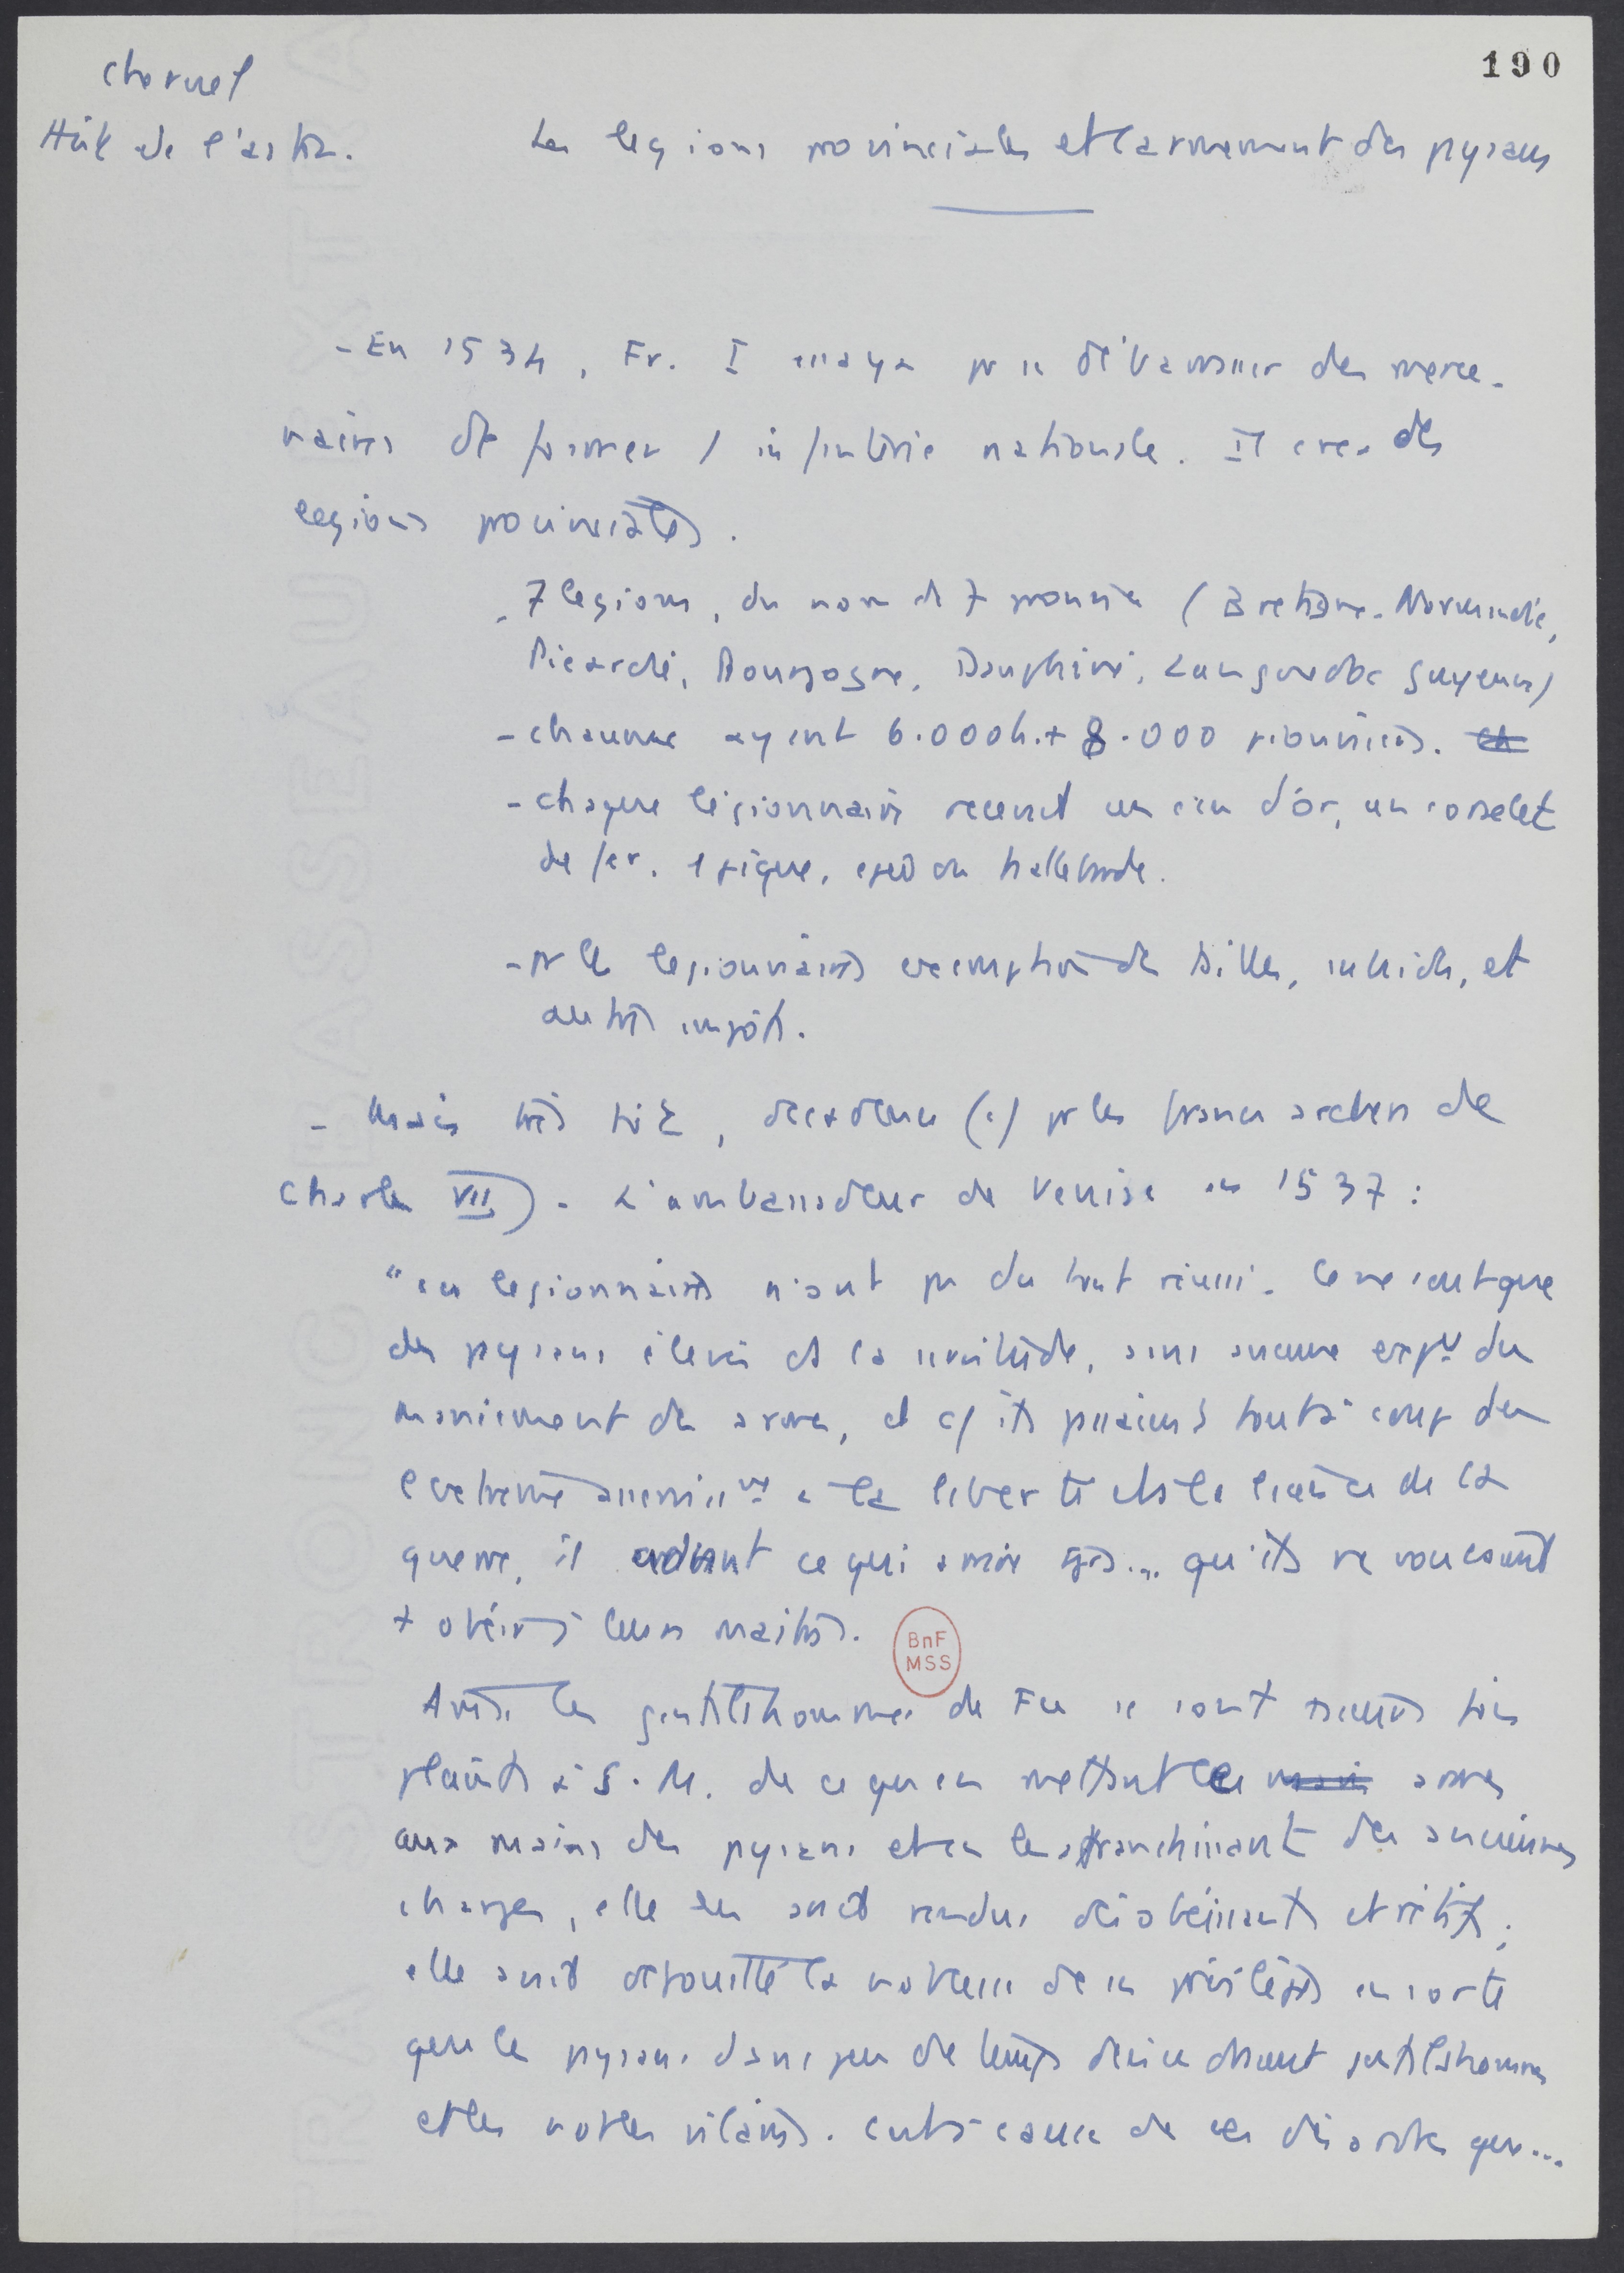 190
Cheruel
Hist de l'adm.
Les legions provinciales et l'armement des pysans
- En 1534, Fr. I essaya pr se débarrasser des merce-
naires de former 1 infanterie nationale. Il crea des
legions provinciales.
- 7 legions, du nom de 7 provinces (Bretagne. Normandie,
Picardie, Bourgogne, Dauphiné, Languedoc Guyenne)
- chacune ayant 6.000h. + 8.000 pionniers.
- chaque légionnaire recevait un écu d'or, un corselet
de fer. 1 pique, épée ou hallebarde.
- pr les legionnaires exemption de tailles, subsides, et
autres impôts.
- Mais très tôt, décadence (c/ pr les francs archers de
Charles VII) - L'ambassadeur de Venise en 1537 :
"ces legionnaires n'ont pas du tout réussi. Ce ne sont que
des pysans élevés ds la servitude, sans aucune expce du
maniement des armes, et c/ ils passaient tout à coup de
l'extreme asservisst à la liberté et à la licence de la
guerre, il advint ce qui arrive ... qu'ils ne voulaient
+ obéir à leurs maîtres.
BnF
MSS
Aussi les gentilshommes de Fce se sont plusieurs fois
plaints à S. M. de ce que en mettant les armes
aux mains des pysans et en les affranchissant des anciennes
charges, elle les avait rendus désobéissants et rétifs ;
elle avait dépouillé la noblesse de ses privilèges en sorte
que les pysans dans peu de temps deviendraient gentilshommes
et les nobles vilains. C'est à cause de ces désordres que...